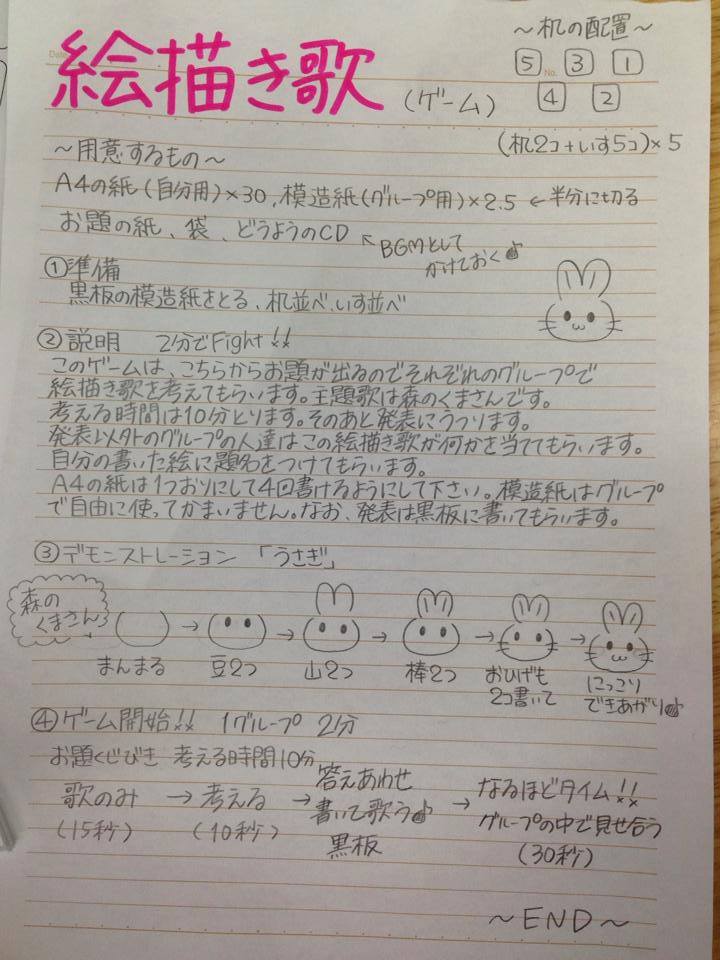 絵描き歌 (ゲーム)
～机の配置～
5 3 1
4 2
(机2コ+いす5コ)×5
～用意するもの～
A4の紙(自分用)×30, 模造紙(グループ用)×2.5 ←半分に切る
お題の紙、袋、どうようのCD ←BGMとして
かけておく♪
①準備
黒板の模造紙をとる、机並べ、いす並べ
②説明 2分でFight!!
このゲームは、こちらからお題が出るのでそれぞれのグループで
絵描き歌を考えてもらいます。主題歌は森のくまさんです。
考える時間は10分とります。そのあと発表にうつります。
発表以外のグループの人達はこの絵描き歌が何かを当ててもらいます。
自分の書いた絵に題名をつけてもらいます。
A4の紙は1つおりにして4回書けるようにして下さい。模造紙はグループ
で自由に使ってかまいません。なお、発表は黒板に書いてもらいます。
③デモンストレーション 「うさぎ」
森の
くまさん♪
→ → → → →
まんまる 豆2つ 山2つ 棒2つ おひげも にっこり
2コ書いて できあがり♪
④ゲーム開始!! 1グループ 2分
お題くじびき 考える時間10分
歌のみ → 考える → 答えあわせ → なるほどタイム!!
書いて歌う♪ グループの中で見せ合う
(15秒) (40秒) 黒板 (30秒)
～END～